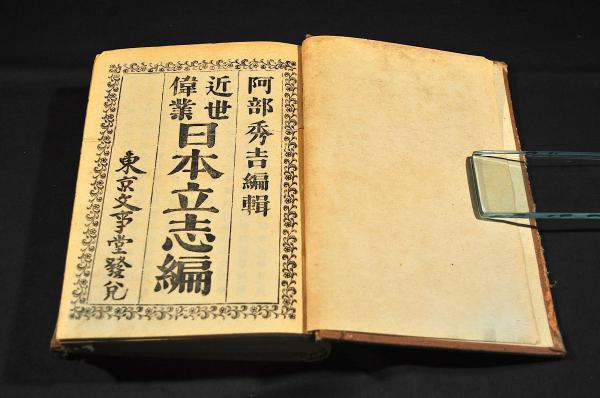 阿部秀吉編輯
近世
偉業
日本立志編
東京文事堂發兌